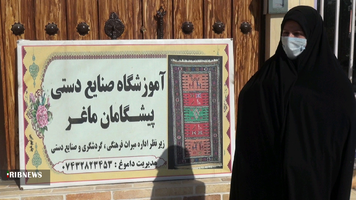 آموزشگاه صنایع دستی
پیشگامان ماغر
زیر نظر اداره میراث فرهنگی، گردشگری و صنایع دستی
مدیریت داموغ : ۰۷۴۳۲۸۲۳۴۵۳
RIBNEWS